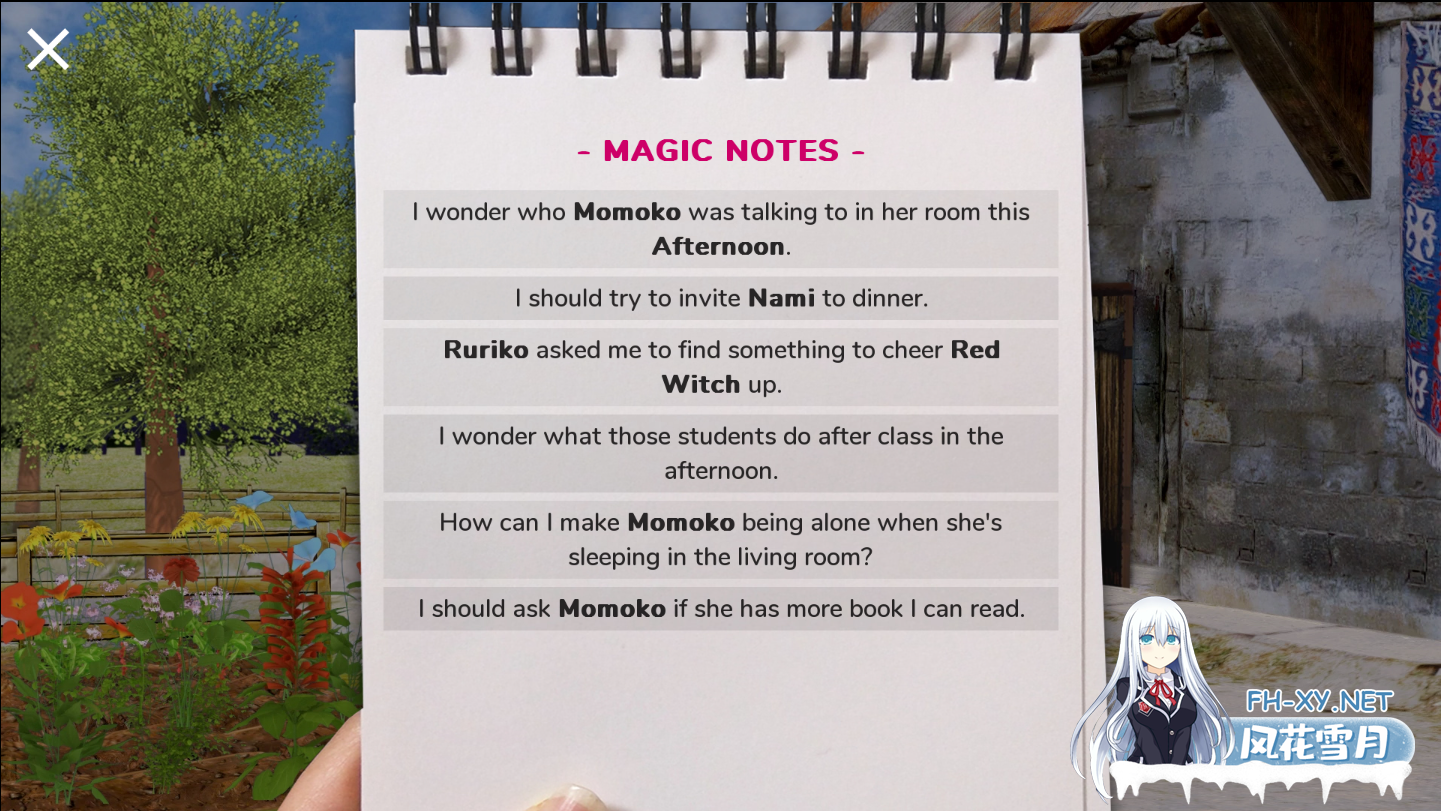 - MAGIC NOTES -
I wonder who Momoko was talking to in her room this
Afternoon.
I should try to invite Nami to dinner.
Ruriko asked me to find something to cheer Red
Witch up.
I wonder what those students do after class in the
afternoon.
How can I make Momoko being alone when she's
sleeping in the living room?
I should ask Momoko if she has more book I can read.
FH-XY.NET
风花雪月